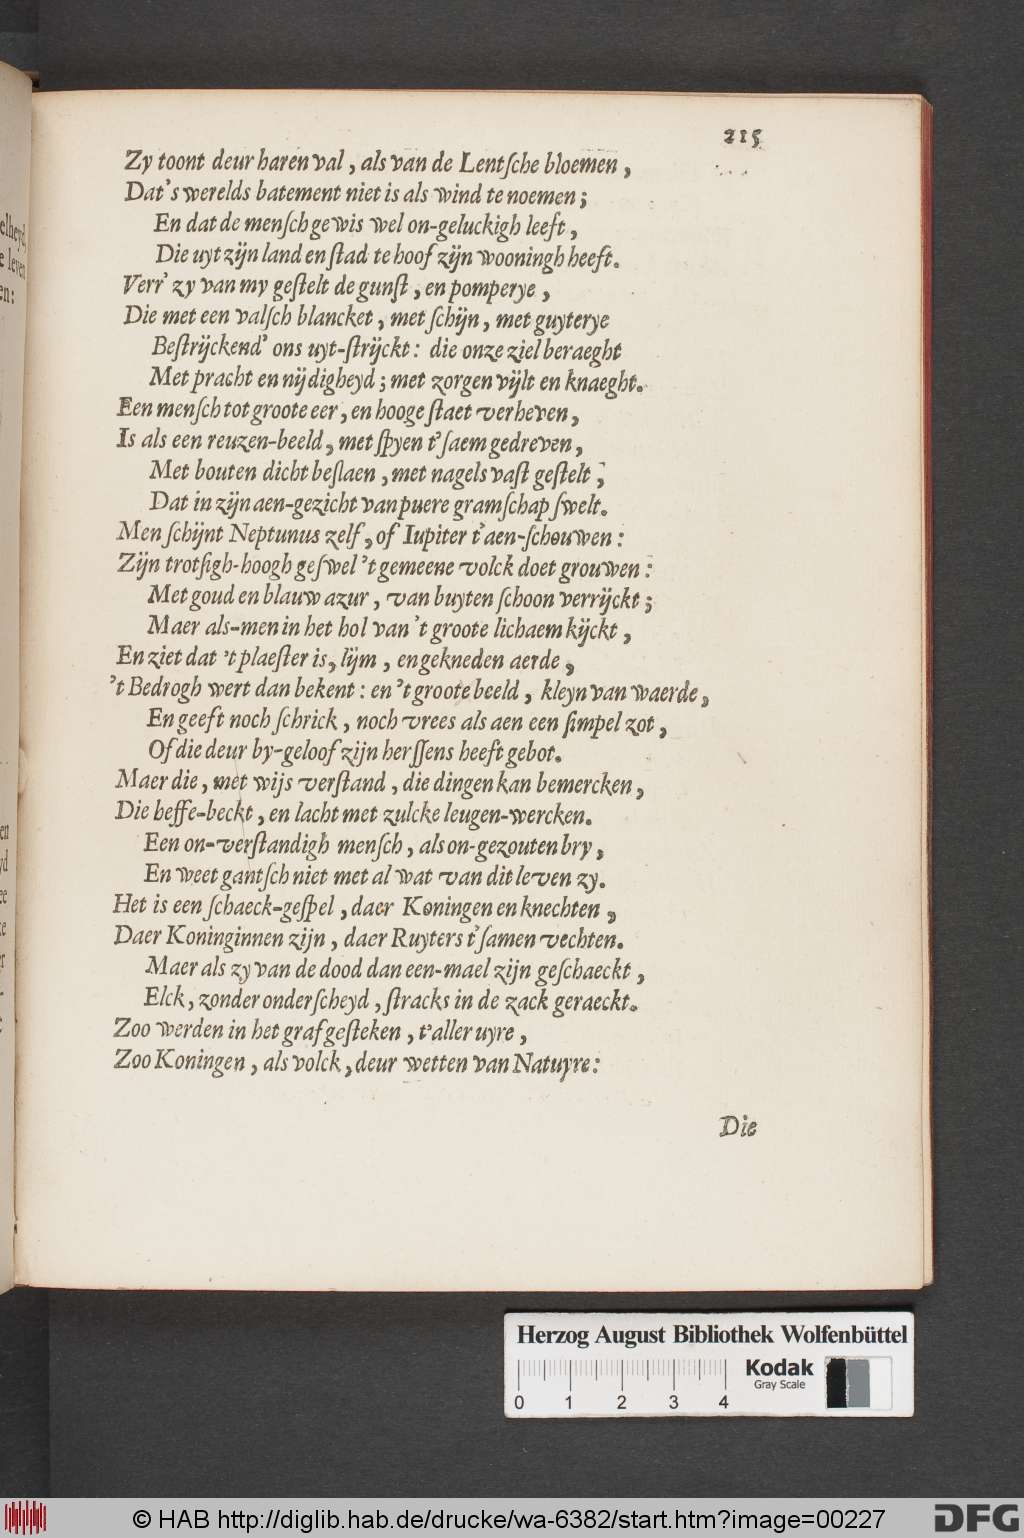 215
Zy toont deur haren val, als van de Lentſche bloemen,
Dat's werelds batement niet is als wind te noemen;
En dat de menſch gewis wel on-geluckigh leeft,
Die uyt zijn land en ſtad te hoof zijn wooningh heeft.
Verr' zy van my geſtelt de gunſt, en pomperye,
Die met een valſch blancket, met ſchijn, met guyterye
Beſtrijckend' ons uyt-ſtrijckt: die onze ziel beraeght
Met pracht en nijdigheyd; met zorgen vijlt en knaeght.
Een menſch tot groote eer, en hooge ſtaet verheven,
Is als een reuzen-beeld, met ſpyen t'ſaem gedreven,
Met bouten dicht beſlaen, met nagels vaſt geſtelt,
Dat in zijn aen-gezicht van puere gramſchap ſwelt.
Men ſchijnt Neptunus zelf, of Iupiter t'aen-ſchouwen:
Zijn trotſigh-hoogh geſwel 't gemeene volck doet grouwen:
Met goud en blauw azur, van buyten ſchoon verrijckt;
Maer als-men in het hol van 't groote lichaem kijckt,
En ziet dat 't plaeſter is, lijm, en gekneden aerde,
't Bedrogh wert dan bekent: en 't groote beeld, kleyn van waerde,
En geeft noch ſchrick, noch vrees als aen een ſimpel zot,
Of die deur by-geloof zijn herſſens heeft gebot.
Maer die, met wijs verſtand, die dingen kan bemercken,
Die beffe-beckt, en lacht met zulcke leugen-wercken.
Een on-verſtandigh menſch, als on-gezouten bry,
En weet gantſch niet met al wat van dit leven zy.
Het is een ſchaeck-geſpel, daer Koningen en knechten,
Daer Koninginnen zijn, daer Ruyters t'ſamen vechten.
Maer als zy van de dood dan een-mael zijn geſchaeckt,
Elck, zonder onderſcheyd, ſtracks in de zack geraeckt.
Zoo werden in het graf geſteken, t'aller uyre,
Zoo Koningen, als volck, deur wetten van Natuyre:
Die
elheyd,
e leven
en:
Herzog August Bibliothek Wolfenbüttel
Kodak
Gray Scale
0 1 2 3 4
© HAB http://diglib.hab.de/drucke/wa-6382/start.htm?image=00227
DFG